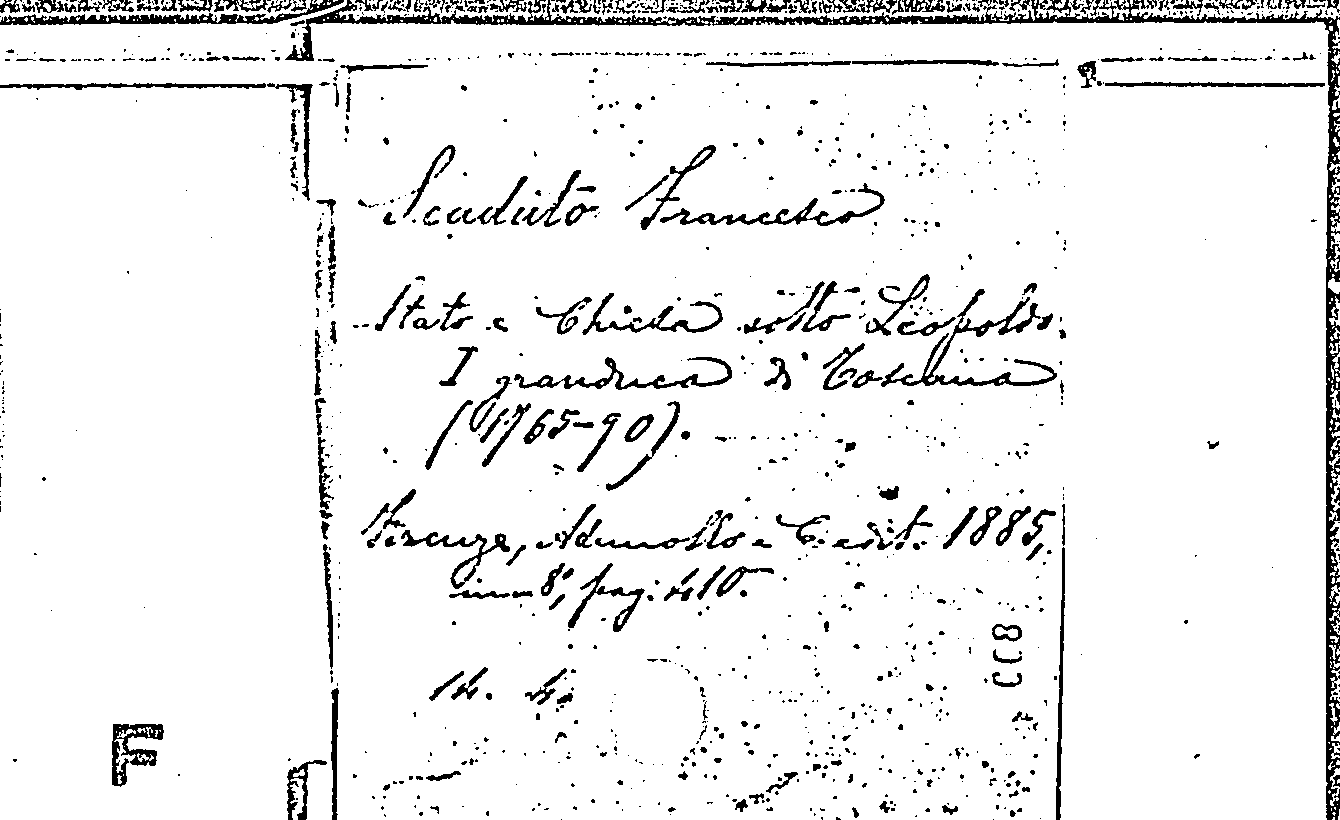 Scaduto Francesco
Stato e Chiesa sotto Leopoldo
I granduca di Toscana
(1765-90).
Firenze, Ademollo e C. edit. 1885,
in 8°, pag. 410.
14. 4.
F